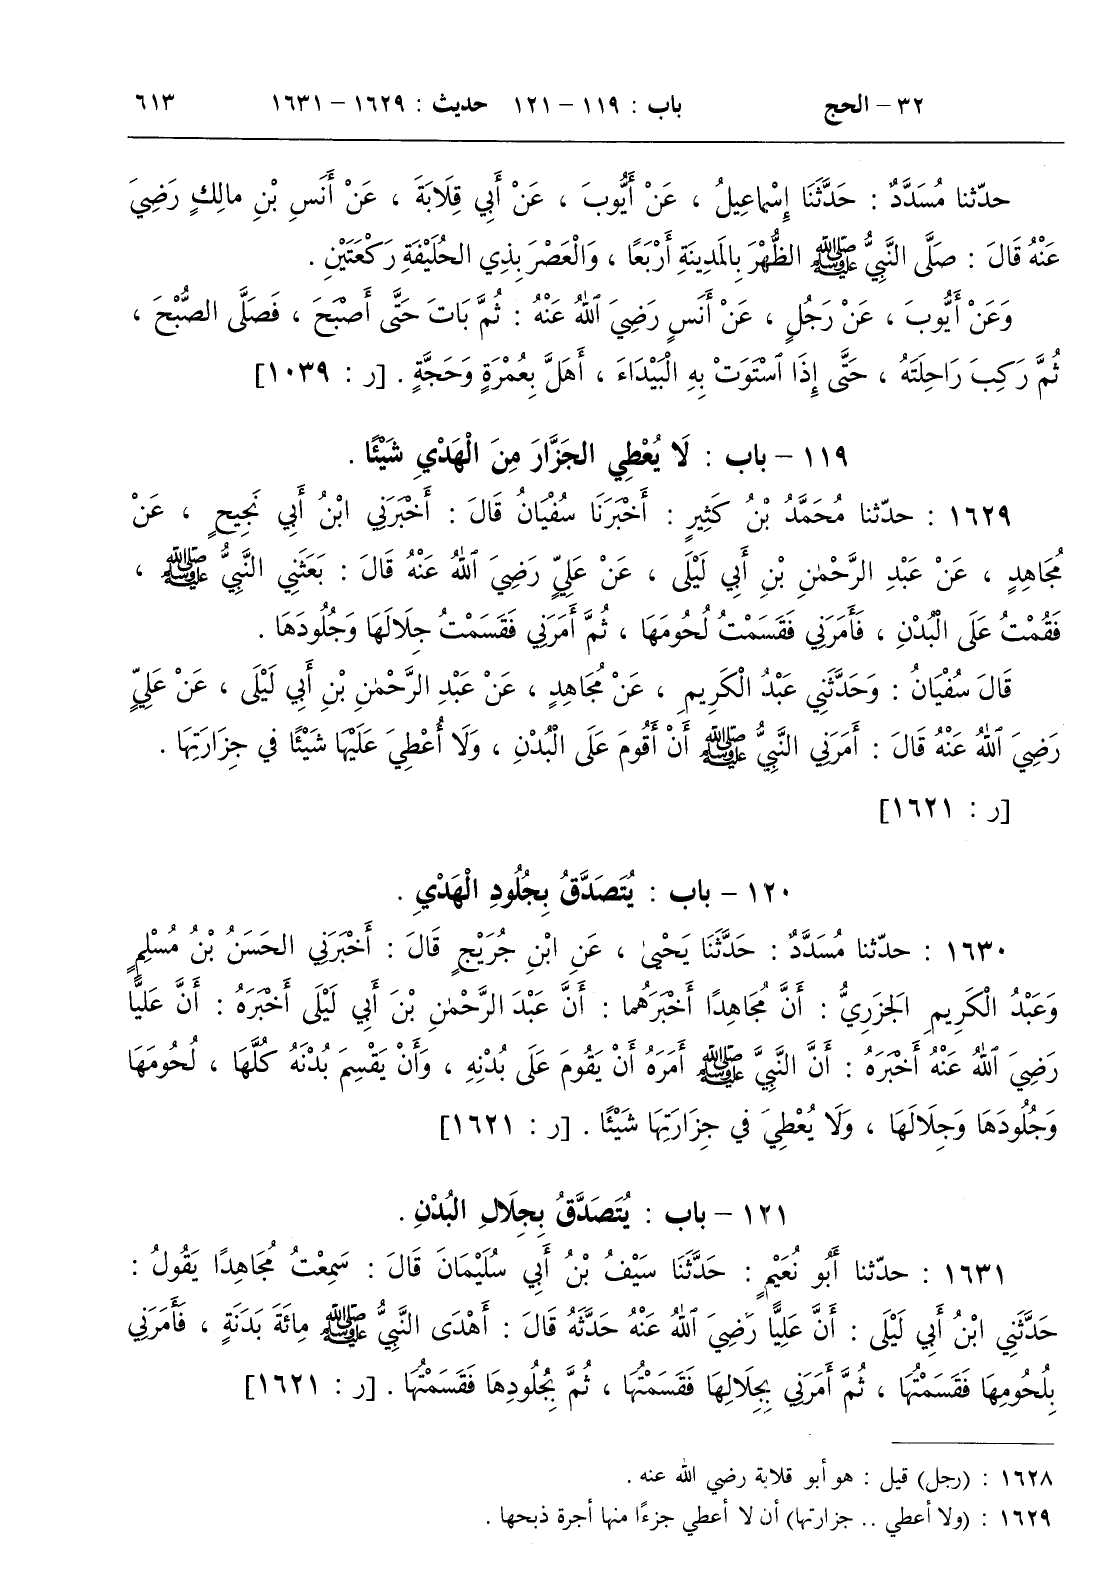 ٣٢ - الحج باب : ١١٩ - ١٢١ حديث : ١٦٢٩ - ١٦٣١ ٦١٣
حدّثنا مُسَدَّدٌ : حَدَّثَنَا إِسْمَاعِيلُ ، عَنْ أَيُّوبَ ، عَنْ أَبِي قِلَابَةَ ، عَنْ أَنَسِ بْنِ مالِكٍ رَضِيَ
عَنْهُ قَالَ : صَلَّى النَّبِيُّ ﷺ الظُّهْرَ بِالمَدِينَةِ أَرْبَعًا ، وَالْعَصْرَ بِذِي الحُلَيْفَةِ رَكْعَتَيْنِ .
وَعَنْ أَيُّوبَ ، عَنْ رَجُلٍ ، عَنْ أَنَسٍ رَضِيَ ٱللهُ عَنْهُ : ثُمَّ بَاتَ حَتَّى أَصْبَحَ ، فَصَلَّى الصُّبْحَ ،
ثُمَّ رَكِبَ رَاحِلَتَهُ ، حَتَّى إِذَا ٱسْتَوَتْ بِهِ الْبَيْدَاءَ ، أَهَلَّ بِعُمْرَةٍ وَحَجَّةٍ . [ر : ١٠٣٩]
١١٩ - باب : لَا يُعْطِي الجَزَّارَ مِنَ الْهَدْيِ شَيْئًا .
١٦٢٩ : حدّثنا مُحَمَّدُ بْنُ كَثِيرٍ : أَخْبَرَنَا سُفْيَانُ قَالَ : أَخْبَرَنِي ابْنُ أَبِي نَجِيحٍ ، عَنْ
مُجَاهِدٍ ، عَنْ عَبْدِ الرَّحْمٰنِ بْنِ أَبِي لَيْلَى ، عَنْ عَلِيٍّ رَضِيَ ٱللهُ عَنْهُ قَالَ : بَعَثَنِي النَّبِيُّ ﷺ ،
فَقُمْتُ عَلَى الْبُدْنِ ، فَأَمَرَنِي فَقَسَمْتُ لُحُومَهَا ، ثُمَّ أَمَرَنِي فَقَسَمْتُ جِلَالَهَا وَجُلُودَهَا .
قَالَ سُفْيَانُ : وَحَدَّثَنِي عَبْدُ الْكَرِيمِ ، عَنْ مُجَاهِدٍ ، عَنْ عَبْدِ الرَّحْمٰنِ بْنِ أَبِي لَيْلَى ، عَنْ عَلِيٍّ
رَضِيَ ٱللهُ عَنْهُ قَالَ : أَمَرَنِي النَّبِيُّ ﷺ أَنْ أَقُومَ عَلَى الْبُدْنِ ، وَلَا أُعْطِيَ عَلَيْهَا شَيْئًا فِي جِزَارَتِهَا .
[ر : ١٦٢١]
١٢٠ - باب : يُتَصَدَّقُ بِجُلُودِ الْهَدْيِ .
١٦٣٠ : حدّثنا مُسَدَّدٌ : حَدَّثَنَا يَحْيىٰ ، عَنِ ابْنِ جُرَيْجٍ قَالَ : أَخْبَرَنِي الحَسَنُ بْنُ مُسْلِمٍ
وَعَبْدُ الْكَرِيمِ الجَزَرِيُّ : أَنَّ مُجَاهِدًا أَخْبَرَهُما : أَنَّ عَبْدَ الرَّحْمٰنِ بْنَ أَبِي لَيْلَى أَخْبَرَهُ : أَنَّ عَلِيًّا
رَضِيَ ٱللهُ عَنْهُ أَخْبَرَهُ : أَنَّ النَّبِيَّ ﷺ أَمَرَهُ أَنْ يَقُومَ عَلَى بُدْنِهِ ، وَأَنْ يَقْسِمَ بُدْنَهُ كُلَّهَا ، لُحُومَهَا
وَجُلُودَهَا وَجِلَالَهَا ، وَلَا يُعْطِيَ فِي جِزَارَتِهَا شَيْئًا . [ر : ١٦٢١]
١٢١ - باب : يُتَصَدَّقُ بِجِلَالِ البُدْنِ .
١٦٣١ : حدّثنا أَبُو نُعَيْمٍ : حَدَّثَنَا سَيْفُ بْنُ أَبِي سُلَيْمَانَ قَالَ : سَمِعْتُ مُجَاهِدًا يَقُولُ :
حَدَّثَنِي ابْنُ أَبِي لَيْلَى : أَنَّ عَلِيًّا رَضِيَ ٱللهُ عَنْهُ حَدَّثَهُ قَالَ : أَهْدَى النَّبِيُّ ﷺ مِائَةَ بَدَنَةٍ ، فَأَمَرَنِي
بِلُحُومِهَا فَقَسَمْتُهَا ، ثُمَّ أَمَرَنِي بِجِلَالِهَا فَقَسَمْتُهَا ، ثُمَّ بِجُلُودِهَا فَقَسَمْتُهَا . [ر : ١٦٢١]
١٦٢٨ : (رجل) قيل : هو أبو قلابة رضي الله عنه .
١٦٢٩ : (ولا أعطي .. جزارتها) أن لا أعطي جزءًا منها أجرة ذبحها .